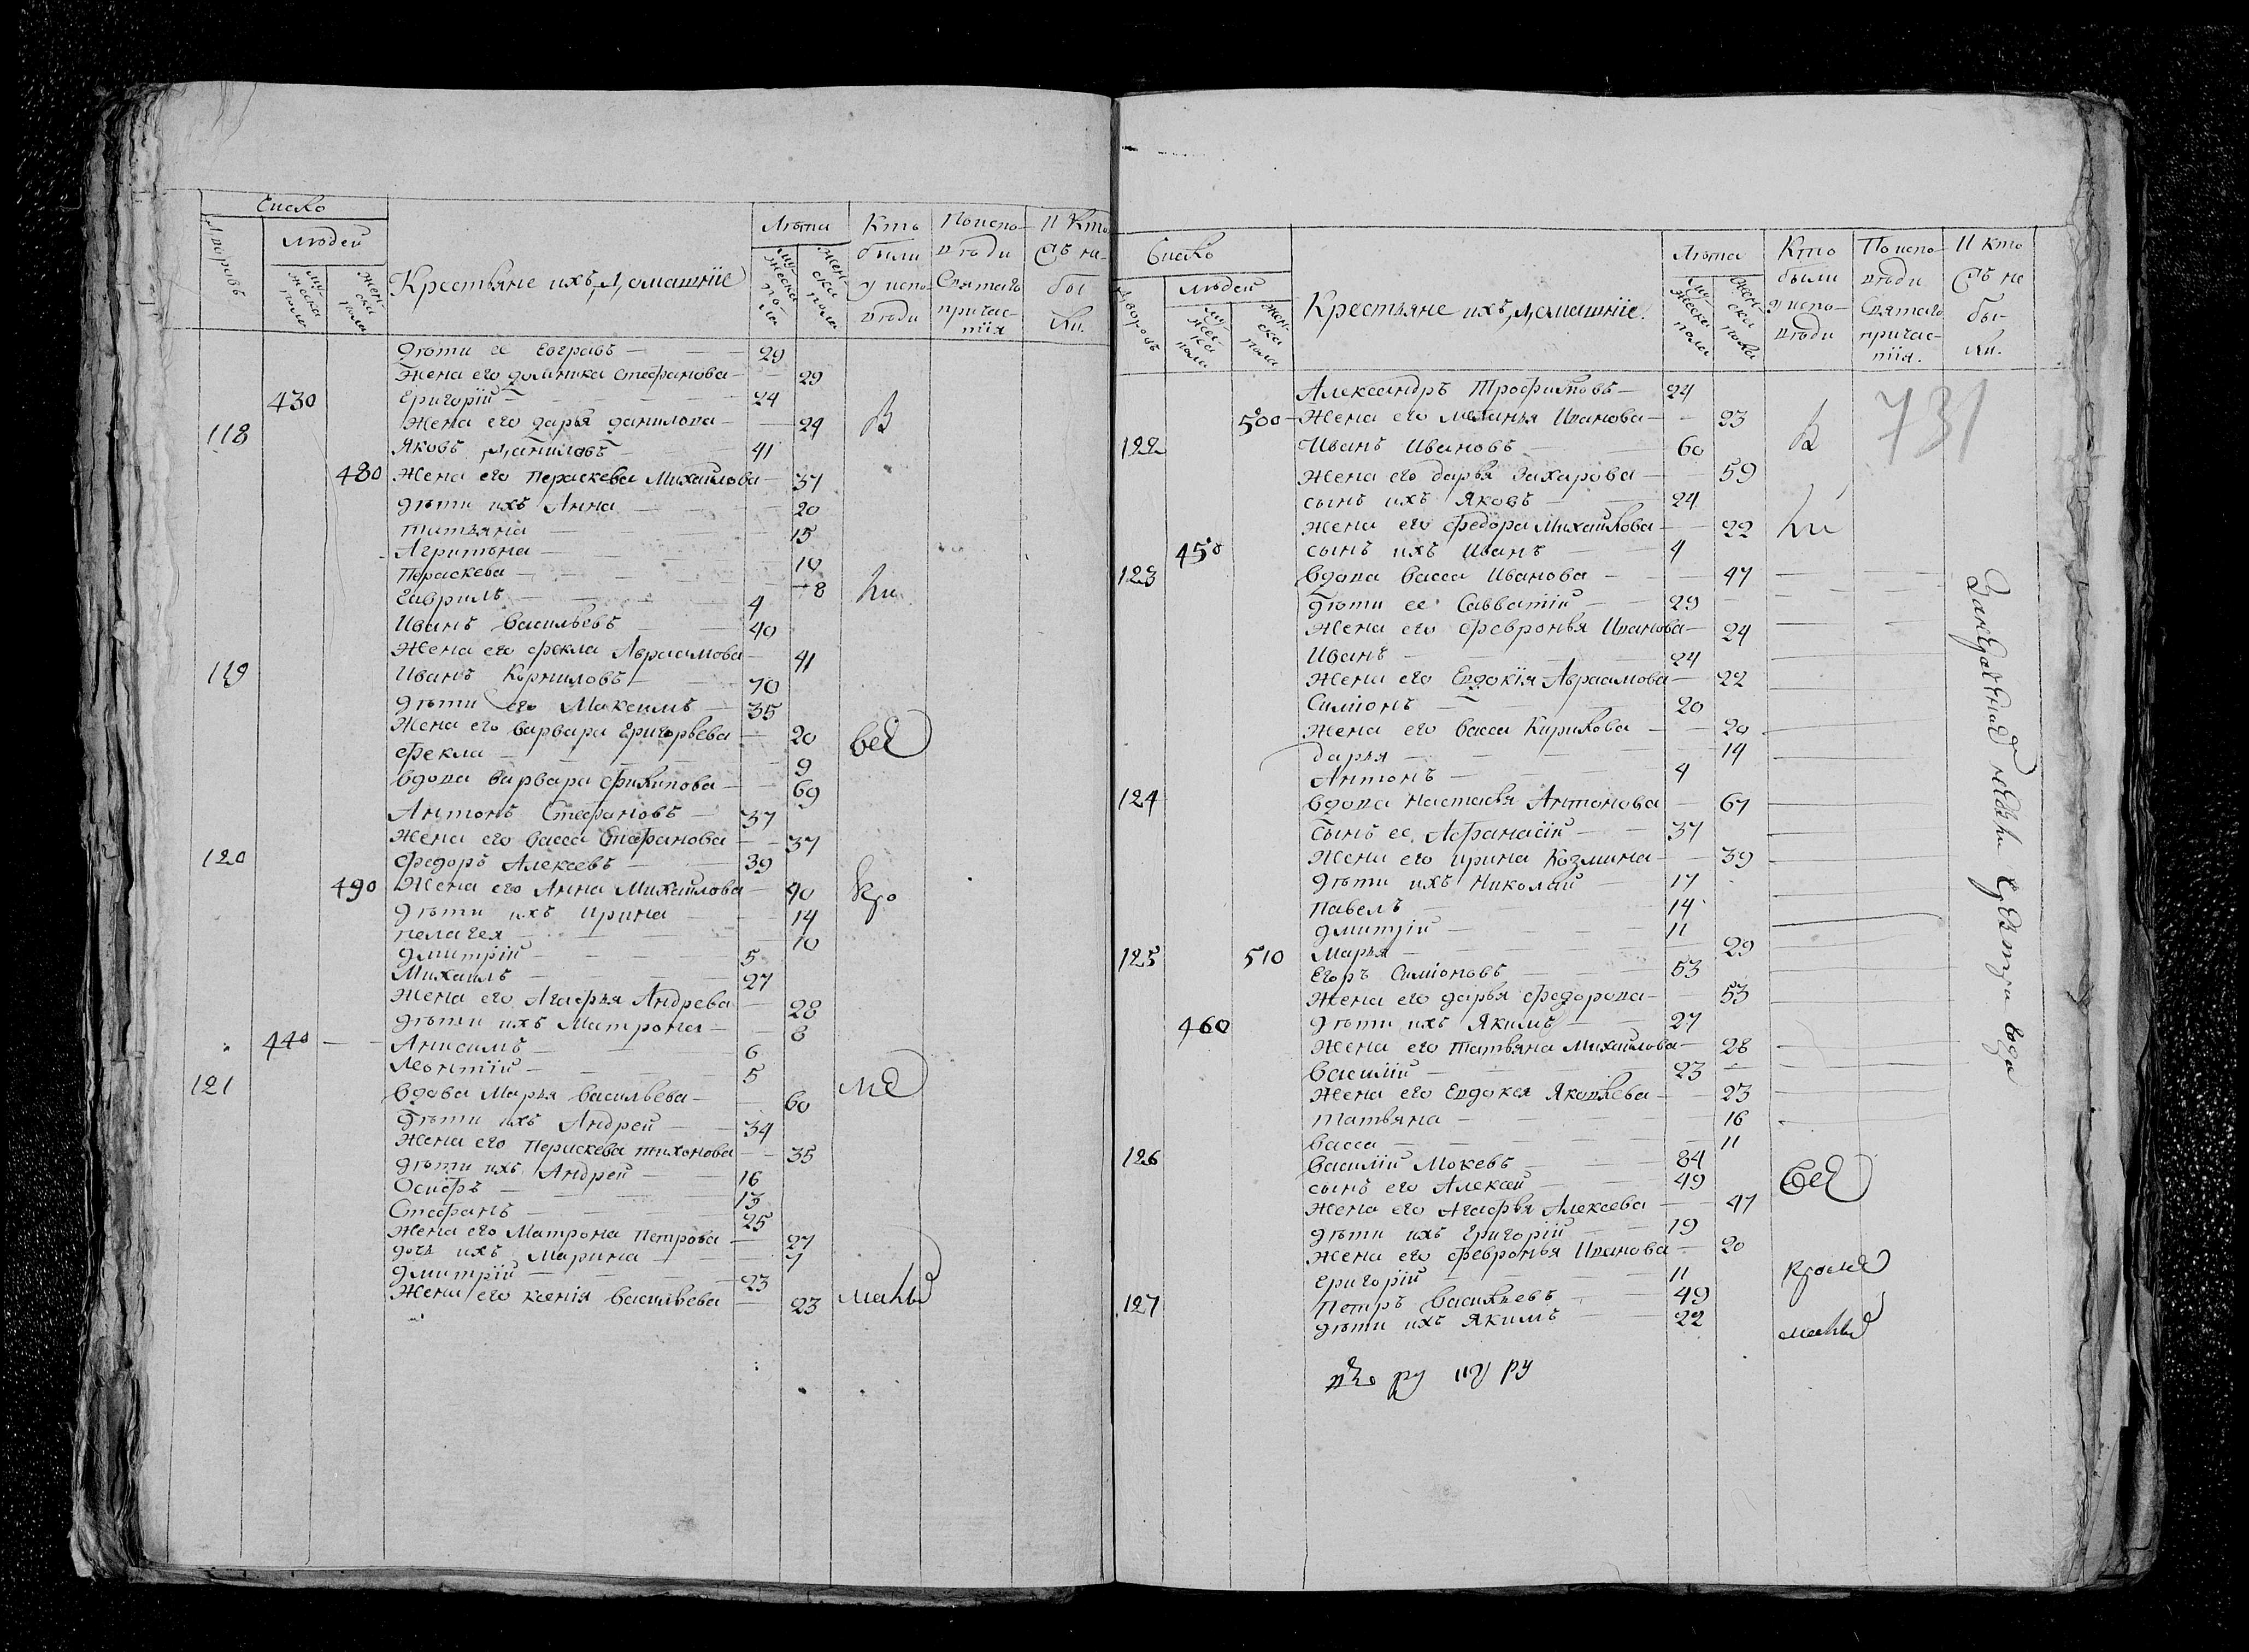 Число
Людей
Дворовъ
мужеска пола
женска пола
Крестьяне ихъ, домашніе
Лѣта
мужеска пола
женска пола
Кто были у исповѣди
По исповѣди Святаго причастія
И кто съ не были.
дѣти ее Евграфъ — 29
Жена его Стефанова — 29
430 Григорій — 24
Жена его дарья данилова — 24 В
118 Яковъ даниловъ — 41
480 Жена его Пераскева Михаилова — 37
дѣти ихъ Анна — 20
татьяна — 15
Агрипѣна — 10
Пераскева — 8
Гаврилъ — 4
Иванъ Васильевъ — 40
Жена его фекла Авраамова — 41
119 Иванъ Корниловъ — 70
дѣти его Максимъ — 35
Жена его варвара Григорьева — 20 всѣ
фекла — 9
вдова варвара филипова — 69
Антонъ Стефановъ — 37
Жена его васса Стефанова — 37
120 федоръ Алексеевъ — 39
490 Жена его Анна Михаилова — 40 кро
дѣти ихъ ирина — 14
пелагея — 10
дмитрій — 5
Михаилъ — 27
Жена его Агафья Андрева — 28
дѣти ихъ Матрона — 8
440 Анисимъ — 6
Леонтій — 5
121 вдова Марья васильева — 60 мѣ
дѣти ихъ Андрей — 34
Жена его Пераскева тихонова — 35
дѣти ихъ Андрей — 16
Осифъ — 13
Стефанъ — 25
Жена его Матрона Петрова — 27
дочь ихъ Марина — 7
дмитрій — 23
Жена его ксенія васильева — 23 малыхъ
Число
Людей
Дворовъ
мужеска пола
женска пола
Крестьяне ихъ, домашніе.
Лѣта
мужеска пола
женска пола
Кто были у исповѣди
По исповѣди Святаго причастія.
И кто съ не были.
731
Александръ Трофимовъ — 24
500 Жена его меланья Иванова — 23
122 Иванъ Ивановъ — 60 В
Жена его дарья Захарова — 59
сынъ ихъ Яковъ — 24
жена его федора Михаилова — 22
450 сынъ ихъ Иванъ — 4
123 вдова васса Иванова — 47
дѣти ее Савватій — 29
Жена его февронья Иванова — 24
Иванъ — 24
Жена его Евдокія Авраамова — 22
Симіонъ — 20
Жена его васса Кирилова — 20
дарья — 14
Антонъ — 4
124 вдова настасья Антонова — 67
Сынъ ее Афанасій — 37
Жена его ирина Козмина — 39
дѣти ихъ Николай — 17
Павелъ — 14
дмитрій — 11
510 Марья — 29
125 Егоръ Симіоновъ — 53
Жена его дарья федорова — 53
460 дѣти ихъ Якимъ — 27
Жена его Татьяна Михаилова — 28
василій — 23
Жена его Евдокея Яковлева — 23
татьяна — 16
васса — 11
126 василій Мокевъ — 84
сынъ его Алексей — 49 всѣ
Жена его Агафья Алексеева — 47
дѣти ихъ Григорій — 19
Жена его февронья Иванова — 20
Григорій — 11 кромѣ
127 Петръ васильевъ — 49
дѣти ихъ Якимъ — 22 малыхъ
ру ру